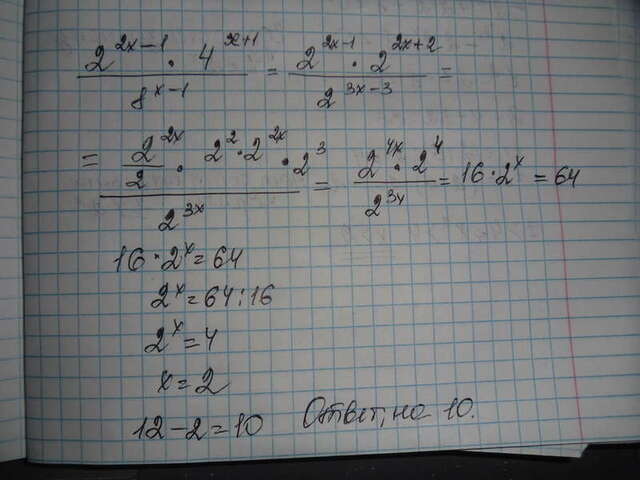 2^(2x-1) · 4^(x+1) / 8^(x-1) = 2^(2x-1) · 2^(2x+2) / 2^(3x-3) =
= 2^(2x)/2 · 2^2 · 2^(2x) · 2^3 / 2^(3x) = 2^(4x) · 2^4 / 2^(3x) = 16 · 2^x = 64
16 · 2^x = 64
2^x = 64 : 16
2^x = 4
x = 2
12 - 2 = 10 Ответ, на 10.